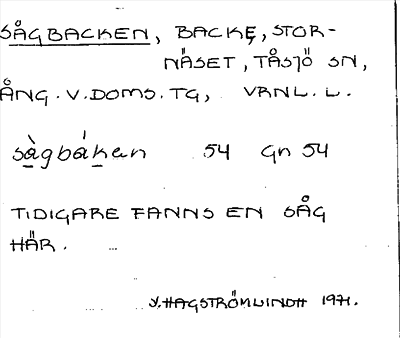 SÅGBACKEN, BACKE, STOR-
NÄSET, TÅSJÖ SN,
ÅNG. V. DOMS. TG, VRNL. L.
sàgbáken 54 Gn 54
TIDIGARE FANNS EN SÅG
HÄR.
Y. HAGSTRÖM LINDH 1971.